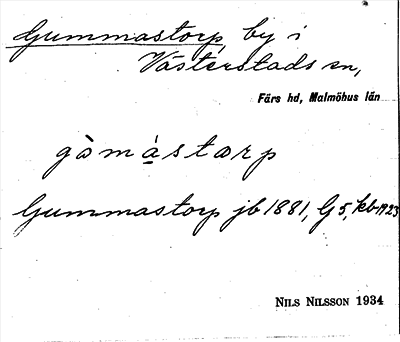 Gummastorp, by i
Västerstads sn,
Färs hd, Malmöhus län
gòmástorp
Gummastorp jb 1881, G5, kb 1923
NILS NILSSON 1934